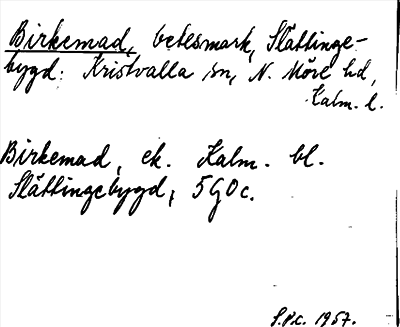 Birkemad, betesmark, Slättinge-
bygd: Kristvalla sn, N. Möre hd,
Kalm. l.
Birkemad, ek. Kalm. bl.
Slättingebygd, 5G0c.
1957.